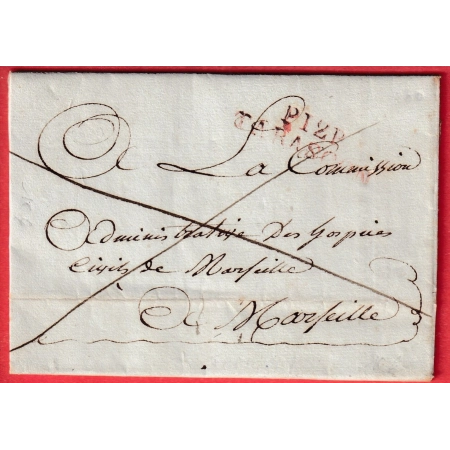 P12P
TARASC
A La Commission
Administrative Des hospices
Civils de Marseille
A Marseille